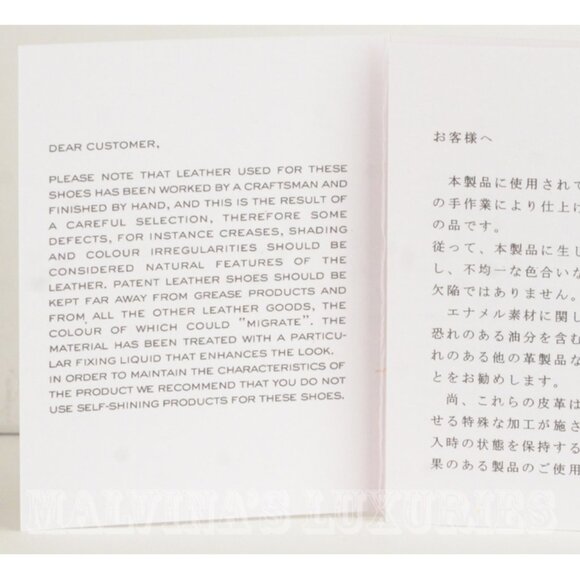 DEAR CUSTOMER,
PLEASE NOTE THAT LEATHER USED FOR THESE
SHOES HAS BEEN WORKED BY A CRAFTSMAN AND
FINISHED BY HAND, AND THIS IS THE RESULT OF
A CAREFUL SELECTION, THEREFORE SOME
DEFECTS, FOR INSTANCE CREASES, SHADING
AND COLOUR IRREGULARITIES SHOULD BE
CONSIDERED NATURAL FEATURES OF THE
LEATHER. PATENT LEATHER SHOES SHOULD BE
KEPT FAR AWAY FROM GREASE PRODUCTS AND
FROM ALL THE OTHER LEATHER GOODS, THE
COLOUR OF WHICH COULD "MIGRATE". THE
MATERIAL HAS BEEN TREATED WITH A PARTICU-
LAR FIXING LIQUID THAT ENHANCES THE LOOK.
IN ORDER TO MAINTAIN THE CHARACTERISTICS OF
THE PRODUCT WE RECOMMEND THAT YOU DO NOT
USE SELF-SHINING PRODUCTS FOR THESE SHOES.
お客様へ
本製品に使用されて
の手作業により仕上げ
の品です。
従って、本製品に生じ
し、不均一な色合いな
欠陥ではありません。
エナメル素材に関し
恐れのある油分を含む
れのある他の革製品な
とをお勧めします。
尚、これらの皮革は
せる特殊な加工が施さ
入時の状態を保持する
果のある製品のご使用
MALVINA'S LUXURIES